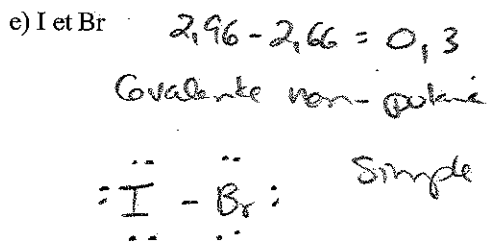 e) I et Br 2,96 - 2,66 = 0,3
Covalente non-polaire
Simple
:I - Br: